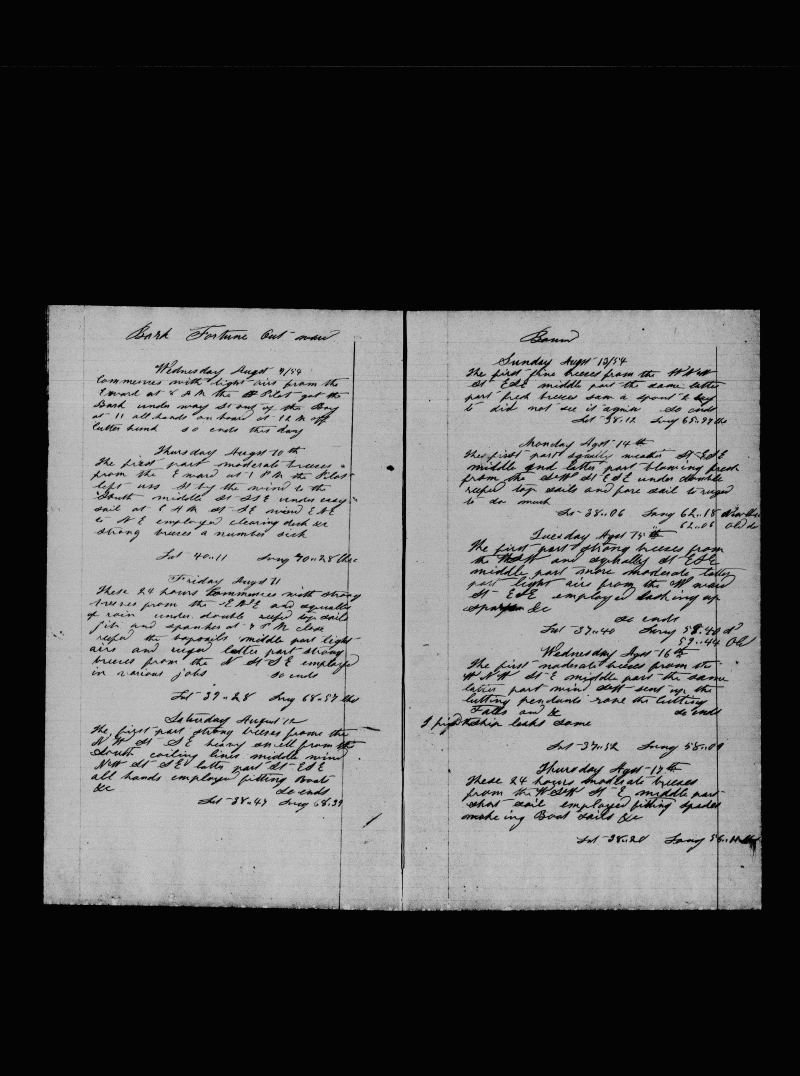 Bark Fortune Out ward
Wednesday Augst 9/54
Commences with light airs from the
Eward at 8 AM the Pilot got the
Bark under way St out of the Bay
at 11 all hands on board at 12 M off
Cutter hunk so ends this day
Thursday Augst 10th
The first part moderate breeses
from the E ward at 1 PM the Pilot
left uss St by the wind to the
South middle St SSE under easy
sail at 8 AM St SE wind ENE
to NE employed clearing deck &c
strong breeses a number sick
Lat 40..11 Long 70..28 Chr
Friday Augst 11
These 24 hours Commences with strong
breeses from the ENE and squalls
of rain under double reefed top sails
jib and spanker at 4 PM close
reefed the topsails middle part light
airs and ruged latter part strong
breeses from the N St SE employed
in various jobs so ends
Lat 39..28 Long 68..57
Saturday August 12
The first part strong breeses frome the
NW St SE heavy swell from the
South coiling lines middle wind
NW St SE latter part St ESE
all hands employed fitting Boats
&c so ends
Lat 38..47 Long 68.39
Bound
Sunday Augst 13/54
The first fine breeses from the WNW
St ESE middle part the same latter
part fresh breeses saw a spout &
to did not see it again So ends
Lat 38.12 Long 65..
Monday Agst 14th
The first part squally weather St ESE
middle and latter part blowing fresh
from the SW St ESE under double
reefed top sails and fore sail to ruged
to do much
Lat 38..06 Long 62..18
62..06 Old
Tuesday Agst 15th
The first part strong breeses from
the WSW and squally St ESE
middle part more moderate latter
part light air from the W ward
St ESE employed lashing up
spars &c
so ends
Lat 37..40 Long 58.40
59..44 Old
Wednesday Agst 16th
The first moderate breeses from the
WNW St E middle part the same
latter part wind SW sent up the
cutting pendants rove the cutting
Falls and &c so ends
ship leaks some
Lat 37..52 Long 58..09
Thursday Agst 17th
These 24 hours moderate breeses
from the WSW St E middle part
short sail employed fitting spades
make ing Boat sails &c
Lat 38..20 Long 56..